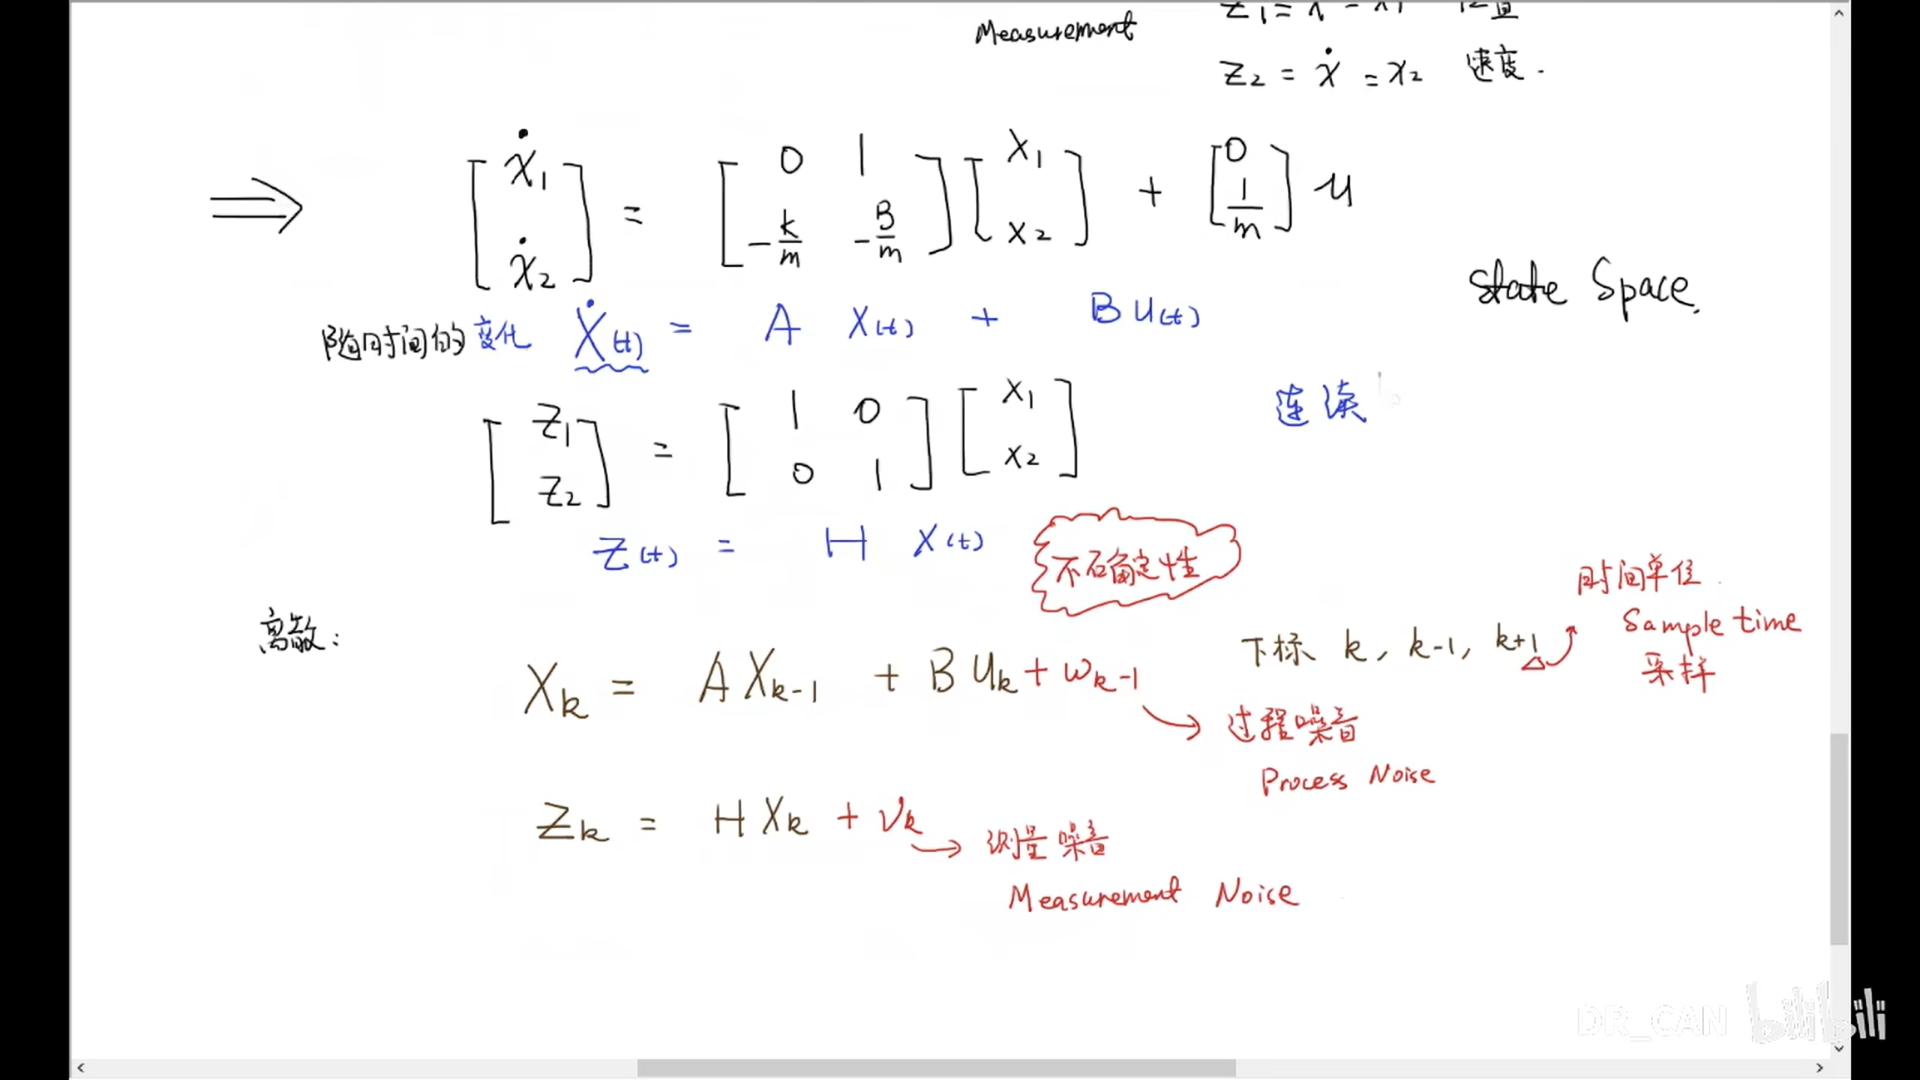 Measurement
Z₂ = ẋ = x₂ 速度.
⇒ [ẋ₁ ẋ₂] = [0 1 -k/m -B/m] [x₁ x₂] + [0 1/m] u
State Space.
随时间的变化 Ẋ(t) = A X(t) + B U(t)
[Z₁ Z₂] = [1 0 0 1] [x₁ x₂]
连续
Z(t) = H X(t)
不确定性
离散:
X_k = A X_{k-1} + B U_k + ω_{k-1}
下标 k, k-1, k+1
时间单位
Sample time
采样
过程噪音
Process Noise
Z_k = H X_k + V_k
测量噪音
Measurement Noise
DR_CAN bilibili